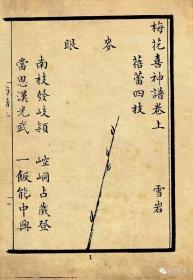 梅花喜神譜卷上
雪岩
蓓蕾四枝
麥眼
南枝發岐頴
崆峒占歲登
當思漢光武
一飯能中興
1